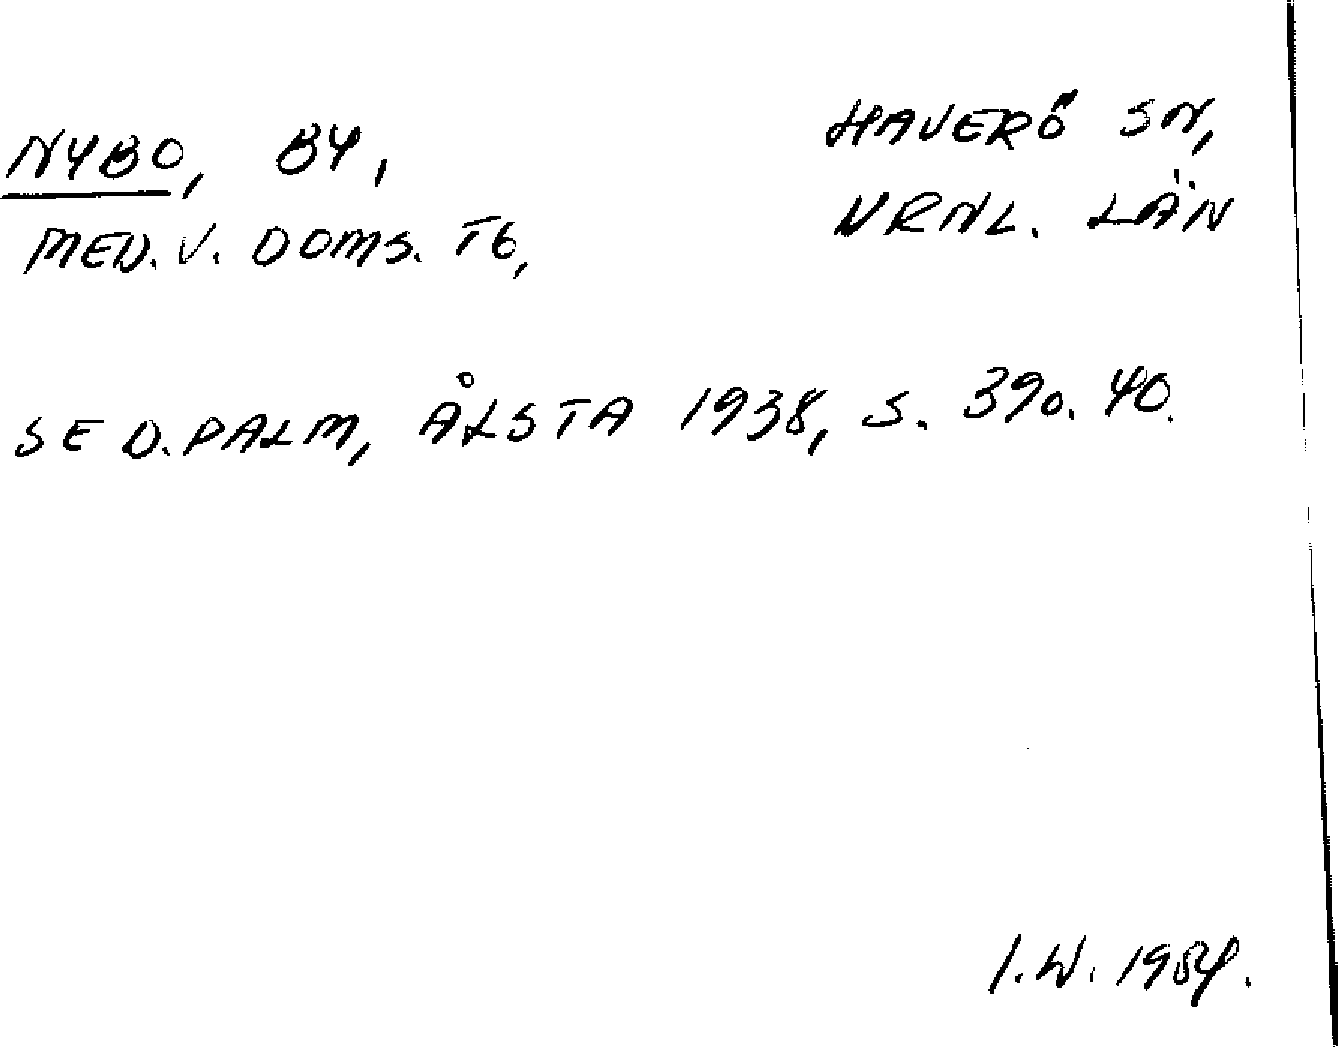 NYBO, BY,
MED. V. DOMS. TG,
HAVERÖ SN,
VRNL. LÄN
SE D. PALM, ÅLSTA 1938, S. 39 o. 40.
I.W. 1984.